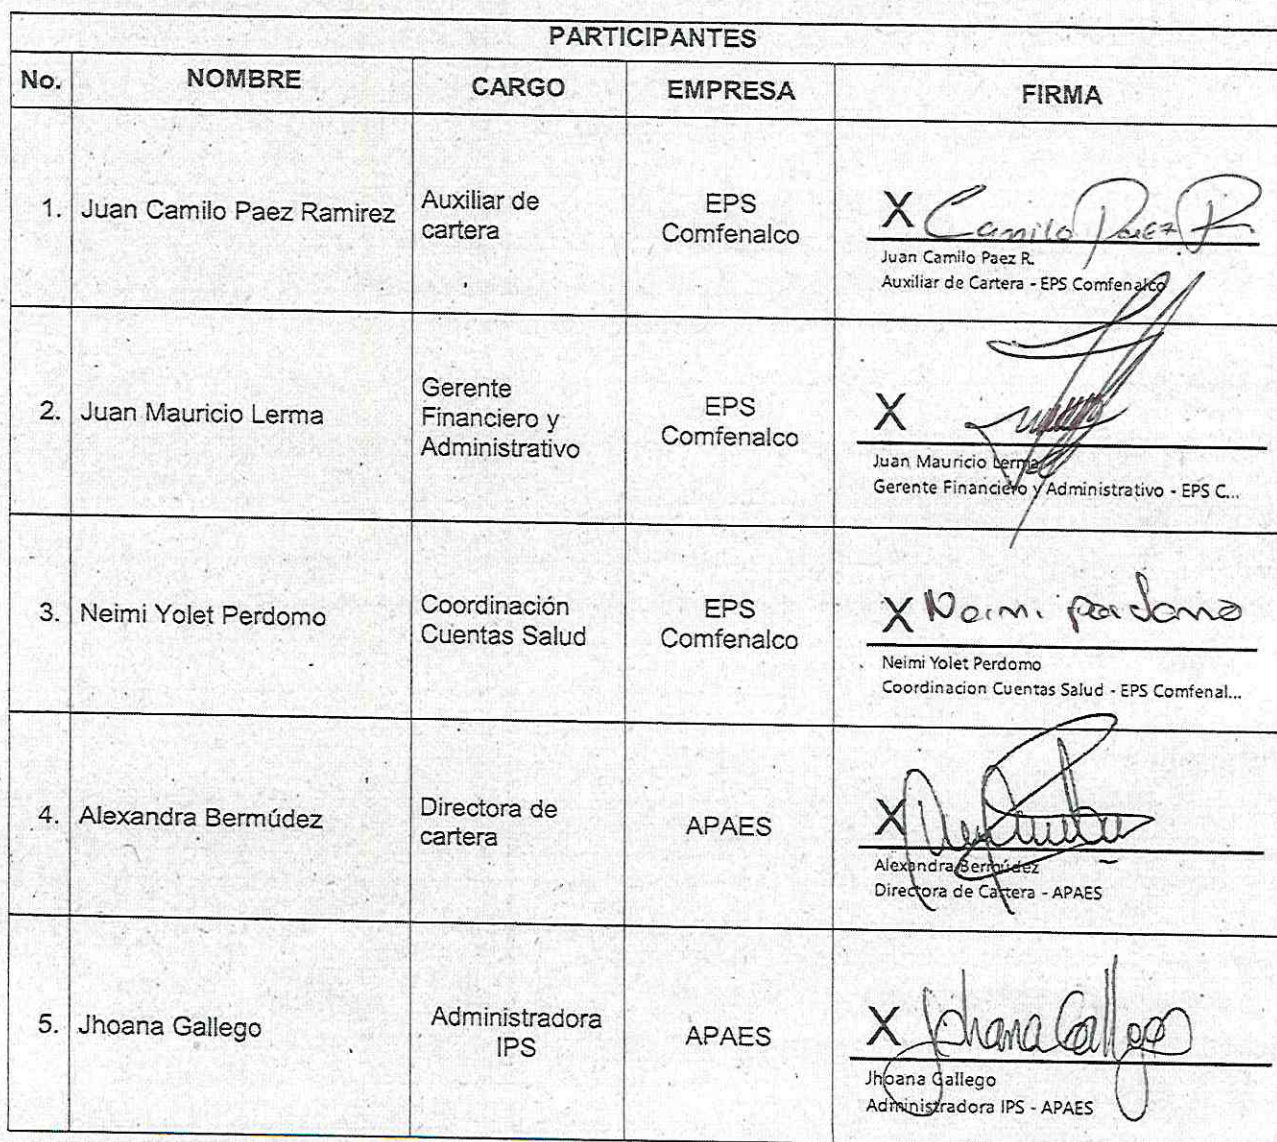 PARTICIPANTES
No. NOMBRE CARGO EMPRESA FIRMA
1. Juan Camilo Paez Ramirez
Auxiliar de
cartera
EPS
Comfenalco
X Camilo Paez R
Juan Camilo Paez R.
Auxiliar de Cartera - EPS Comfenalco
2. Juan Mauricio Lerma
Gerente
Financiero y
Administrativo
EPS
Comfenalco
X
Juan Mauricio Lerma
Gerente Financiero y Administrativo - EPS C...
3. Neimi Yolet Perdomo
Coordinación
Cuentas Salud
EPS
Comfenalco
X Neimi perdomo
Neimi Yolet Perdomo
Coordinacion Cuentas Salud - EPS Comfenal...
4. Alexandra Bermúdez
Directora de
cartera
APAES
X
Alexandra Bermúdez
Directora de Cartera - APAES
5. Jhoana Gallego
Administradora
IPS
APAES
X Jhoana Gallego
Jhoana Gallego
Administradora IPS - APAES